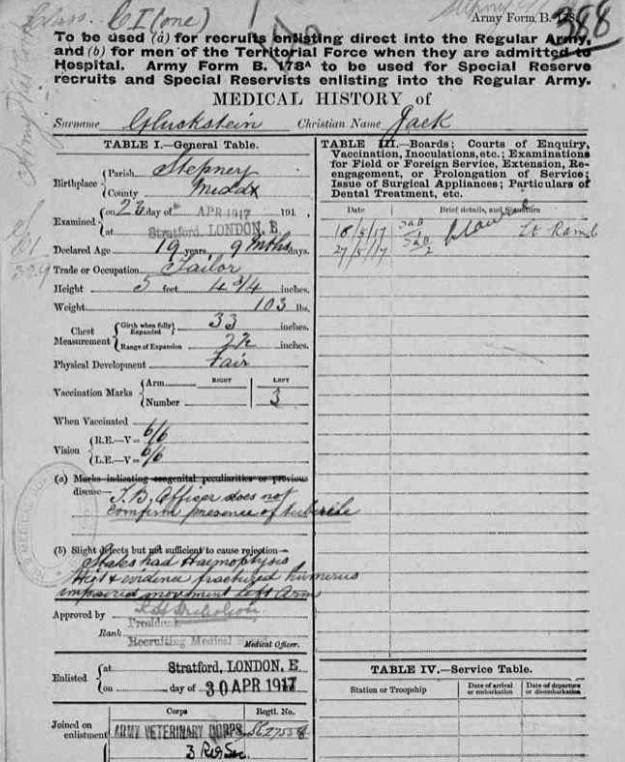 Class. C I (one)
Army Form B. 178
To be used (a) for recruits enlisting direct into the Regular Army,
and (b) for men of the Territorial Force when they are admitted to
Hospital. Army Form B. 178A to be used for Special Reserve
recruits and Special Reservists enlisting into the Regular Army.
MEDICAL HISTORY of
Surname Gluckstein Christian Name Jack
TABLE I.—General Table.
Birthplace
Parish Stepney
County Middx
Examined
on 23 day of APR 1917 191
at Stratford, LONDON, E.
Declared Age 19 years, 9 mths days.
Trade or Occupation Tailor
Height 5 feet 4 3/4 inches.
Weight 103 lbs.
Chest Measurement
Girth when fully Expanded 33 inches.
Range of Expansion 2½ inches.
Physical Development Fair
Vaccination Marks
RIGHT LEFT
Arm
Number 3
When Vaccinated
Vision
R.E.—V= 6/6
L.E.—V= 6/6
(a) Marks indicating congenital peculiarities or previous
disease— T.B. Officer does not
confirm presence of tubercle
(b) Slight defects but not sufficient to cause rejection—
States had Haemophysis
Hist & evidence fractured humerus
impaired movement left arm
Approved by
President
Rank Recruiting Medical
Medical Officer.
Enlisted
at Stratford, LONDON, E
on day of 30 APR 1917
Corps Regtl. No.
Joined on enlistment ARMY VETERINARY CORPS
3 Res
TABLE III.—Boards; Courts of Enquiry,
Vaccination, Inoculations, etc.; Examinations
for Field or Foreign Service, Extension, Re-
engagement, or Prolongation of Service;
Issue of Surgical Appliances; Particulars of
Dental Treatment, etc.
Date Brief details, and Signatures
18/5/17
27/5/17
TABLE IV.—Service Table.
Station or Troopship Date of arrival or embarkation Date of departure or disembarkation